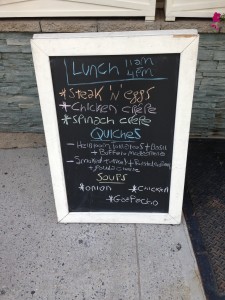 Lunch 11am
4pm
*Steak 'N' eggs
*Chicken crêpe
*Spinach crêpe
Quiches
- Heirloom tomatoes + Basil
+ Buffalo Mozzarella
- Smoked +
+ gouda cheese
Soups
*onion *Chicken
*Gazpacho